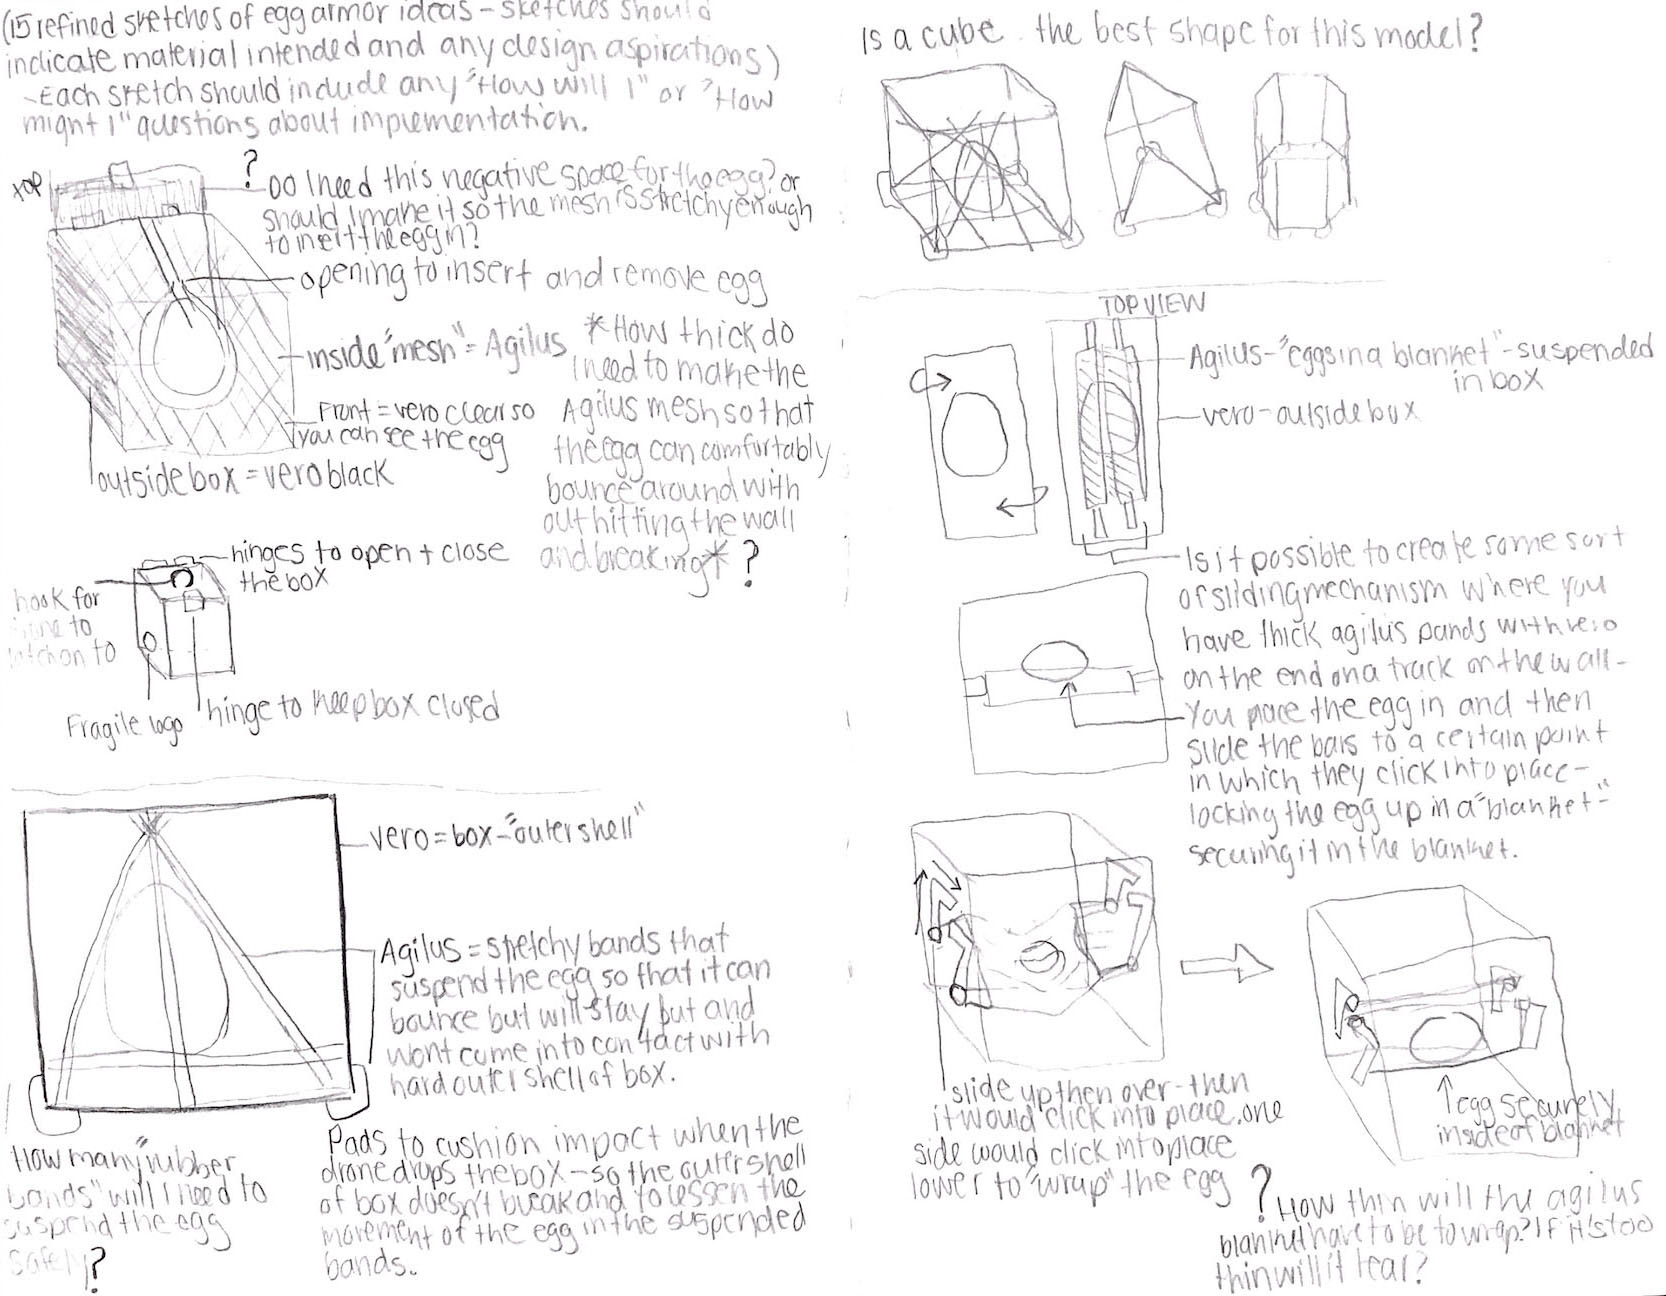 (15 refined sketches of egg armor ideas - sketches should
indicate material intended and any design aspirations)
- Each sketch should include any "How will I" or "How
might I" questions about implementation.
TOP
?
DO I need this negative space for the egg? or
should I make it so the mesh is stretchy enough
to insert the egg in?
opening to insert and remove egg
inside "mesh" = Agilus
Front = vero clear so
you can see the egg
outside box = vero black
*How thick do
I need to make the
Agilus mesh so that
the egg can comfortably
bounce around with
out hitting the wall
and breaking* ?
hinges to open + close
the box
hook for
to
on to
Fragile logo
hinge to keep box closed
vero = box - "outer shell"
Agilus = stretchy bands that
suspend the egg so that it can
bounce but will stay put and
wont come into contact with
hard outer shell of box.
How many "rubber
bands" will I need to
suspend the egg
safely?
Pads to cushion impact when the
drone drops the box - so the outer shell
of box doesn't break and to lessen the
movement of the egg in the suspended
bands.
Is a cube the best shape for this model?
TOP VIEW
Agilus - "eggs in a blanket" - suspended
in box
vero - outside box
Is it possible to create some sort
of sliding mechanism where you
have thick agilus bands with vero
on the end on a track on the wall -
You place the egg in and then
slide the bars to a certain point
in which they click into place -
locking the egg up in a "blanket" -
securing it in the blanket.
slide up then over - then
it would click into place. one
side would click into place
lower to "wrap" the egg
egg securely
inside of blanket
? How thin will the agilus
blanket have to be to wrap? If it's too
thin will it tear?